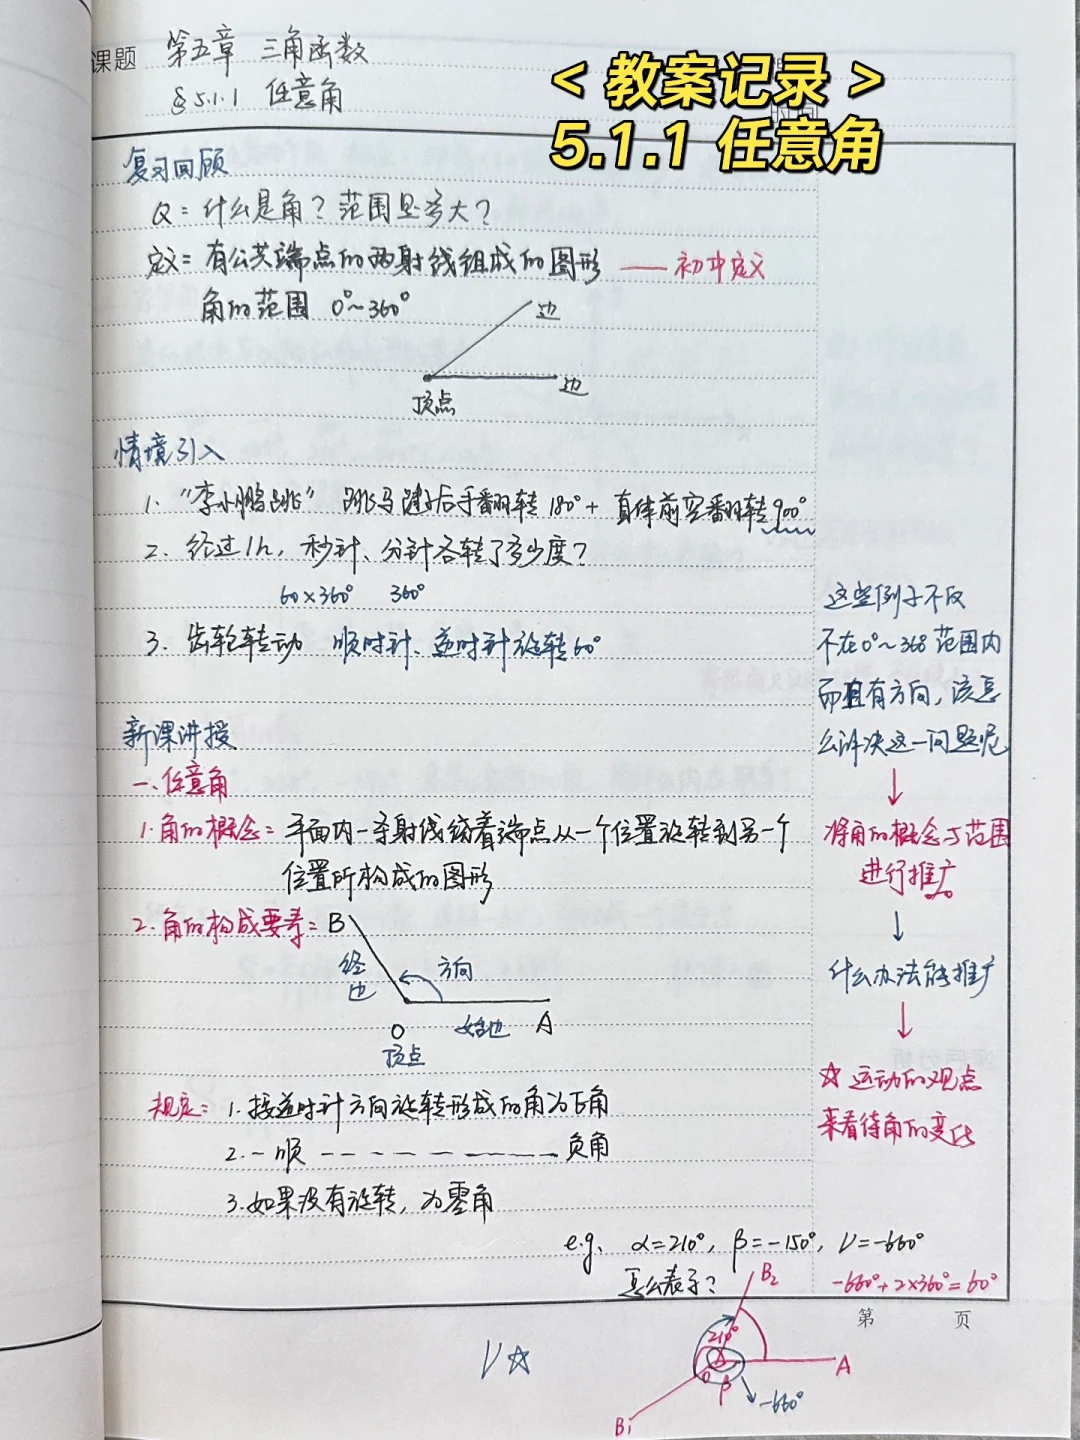 课题 第五章 三角函数
§5.1.1 任意角
< 教案记录 >
5.1.1 任意角
时间
复习回顾
Q: 什么是角？范围是多大？
定义: 有公共端点的两射线组成的图形 —— 初中定义
角的范围 0°~360°
边
边
顶点
情境引入
1. "李小鹏跳" 跳马踺子后手翻转180°+ 直体前空翻转900°
2. 经过1h, 秒针、分针各转了多少度？
60×360° 360°
3. 齿轮转动 顺时针、逆时针旋转60°
这些例子不仅
不在0°~360°范围内
而且有方向, 该怎
么解决这一问题呢
↓
将角的概念与范围
进行推广
↓
什么办法能推广
↓
☆ 运动的观点
来看待角的变化
新课讲授
一、任意角
1. 角的概念: 平面内一条射线绕着端点从一个位置旋转到另一个
位置所构成的图形
2. 角的构成要素: B
终边
方向
O 始边 A
顶点
规定: 1. 按逆时针方向旋转形成的角为正角
2. 一顺 — — — — — — 负角
3. 如果没有旋转, 为零角
e.g. α=210°, β=-150°, γ=-660°
怎么表示？
-660°+2×360°=60°
第 页
B₂
210°
A
O
β
-660°
B₁
γ☆